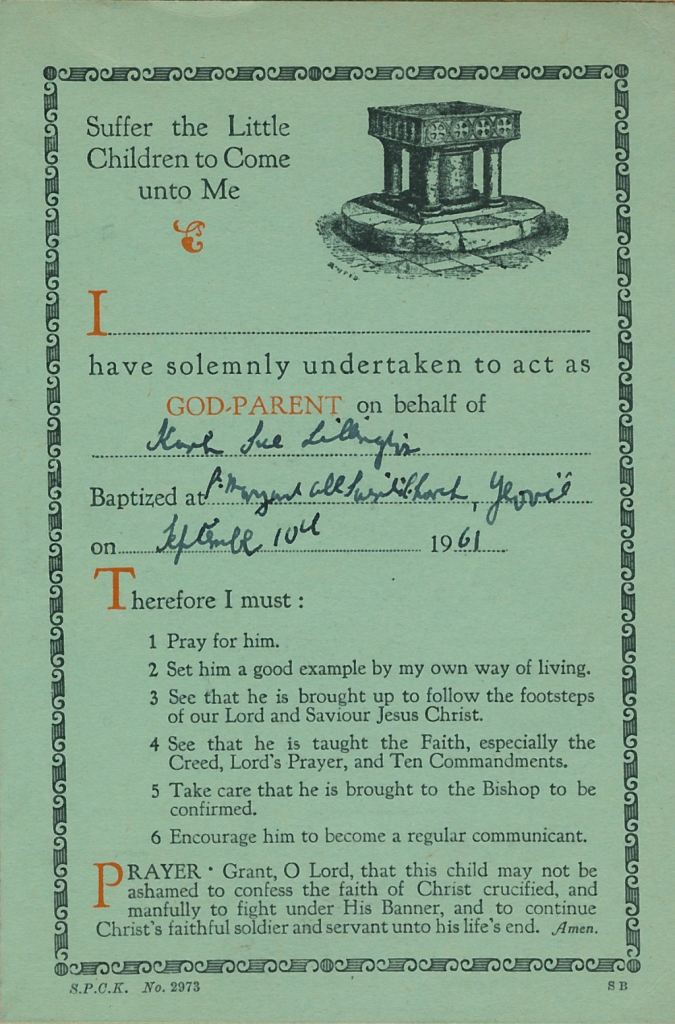 Suffer the Little
Children to Come
unto Me
I
have solemnly undertaken to act as
GOD-PARENT on behalf of
Sue
Baptized at Church, Yeovil
on September 10th 1961
Therefore I must :
1 Pray for him.
2 Set him a good example by my own way of living.
3 See that he is brought up to follow the footsteps
of our Lord and Saviour Jesus Christ.
4 See that he is taught the Faith, especially the
Creed, Lord's Prayer, and Ten Commandments.
5 Take care that he is brought to the Bishop to be
confirmed.
6 Encourage him to become a regular communicant.
PRAYER · Grant, O Lord, that this child may not be
ashamed to confess the faith of Christ crucified, and
manfully to fight under His Banner, and to continue
Christ's faithful soldier and servant unto his life's end. Amen.
S.P.C.K. No. 2973 S B